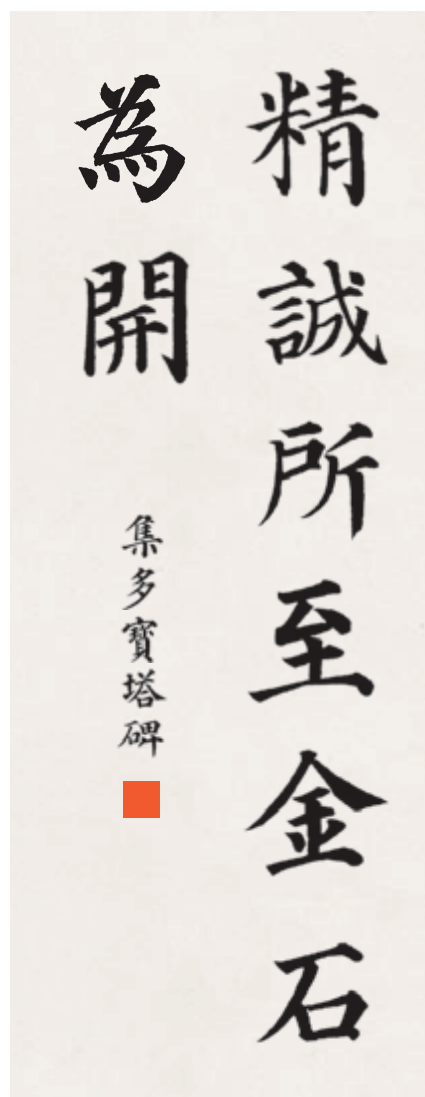 精誠所至金石
為開
集多寶塔碑